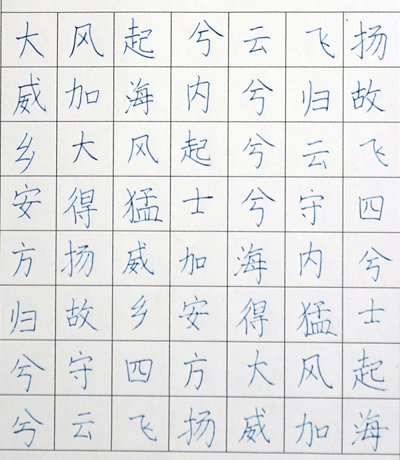 大风起兮云飞扬
威加海内兮归故
乡大风起兮云飞
安得猛士兮守四
方扬威加海内兮
归故乡安得猛士
兮守四方大风起
兮云飞扬威加海